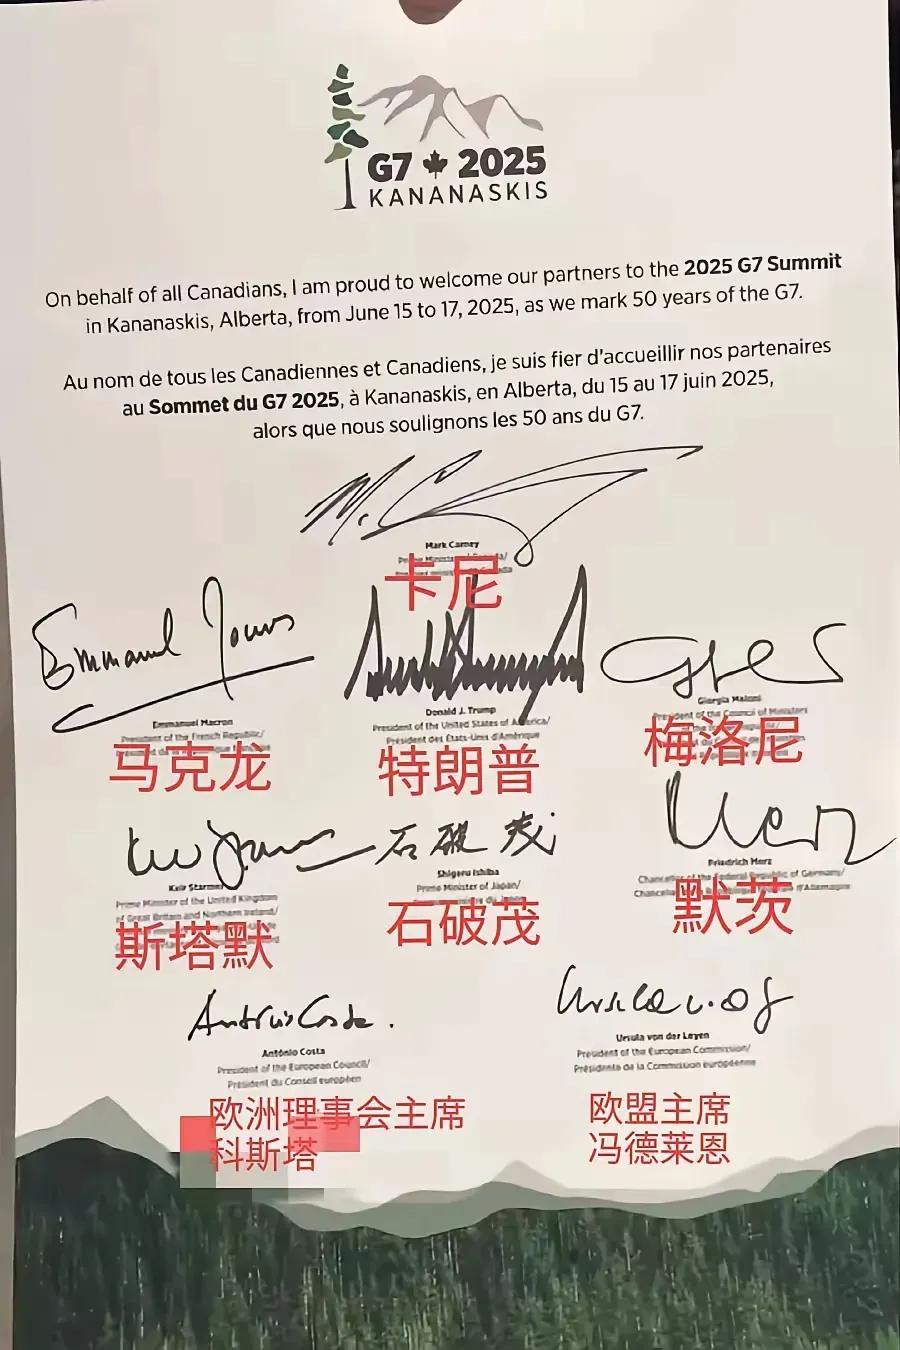 G7 2025
KANANASKIS
On behalf of all Canadians, I am proud to welcome our partners to the 2025 G7 Summit
in Kananaskis, Alberta, from June 15 to 17, 2025, as we mark 50 years of the G7.
Au nom de tous les Canadiennes et Canadiens, je suis fier d'accueillir nos partenaires
au Sommet du G7 2025, à Kananaskis, en Alberta, du 15 au 17 juin 2025,
alors que nous soulignons les 50 ans du G7.
M. C
Mark Carney
卡尼
Emmanuel
Emmanuel Macron
President of the French Republic/
马克龙
Donald J. Trump
President of the United States of America/
Président des États-Unis d'Amérique
特朗普
Giorgia Meloni
President of the Council of Ministers
梅洛尼
Keir Starmer
Prime Minister of the United Kingdom
of Great Britain and Northern Ireland/
斯塔默
石破茂
Shigeru Ishiba
Prime Minister of Japan/
石破茂
Merz
Friedrich Merz
Chancellor of the Federal Republic of Germany/
默茨
António Costa
António Costa
President of the European Council/
Président du Conseil européen
欧洲理事会主席
科斯塔
Ursula von der Leyen
President of the European Commission/
Présidente de la Commission européenne
欧盟主席
冯德莱恩